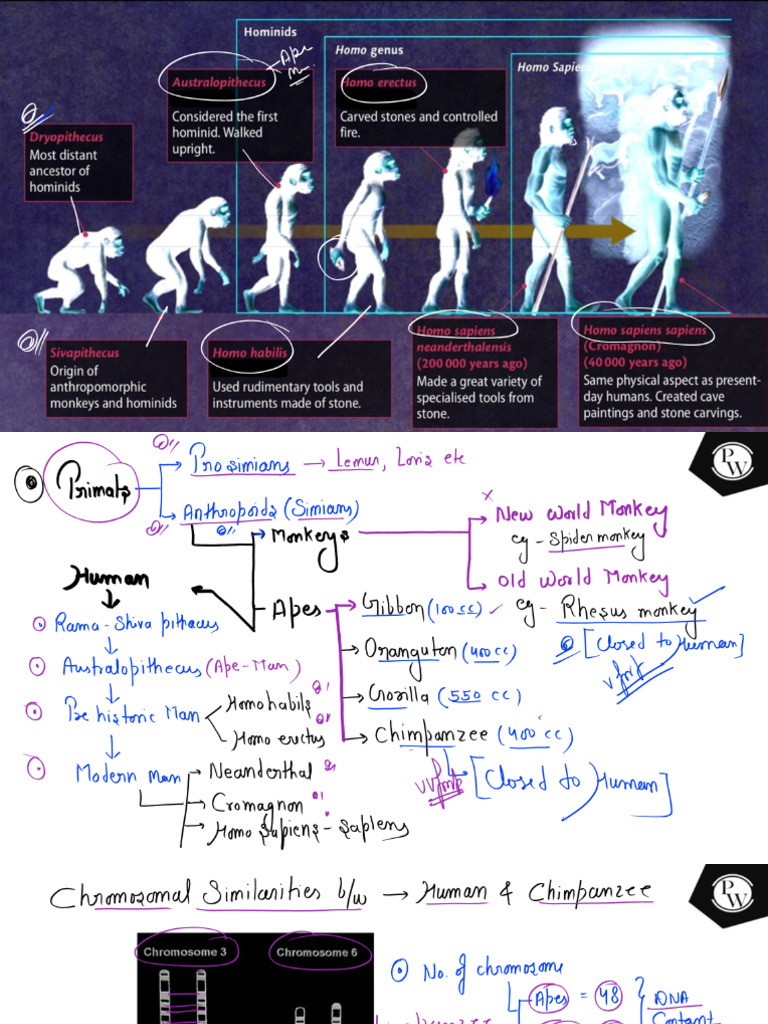 Hominids
Homo genus
Homo Sapien
Australopithecus
Ape
Considered the first
hominid. Walked
upright.
Homo erectus
Carved stones and controlled
fire.
Dryopithecus
Most distant
ancestor of
hominids
Sivapithecus
Origin of
anthropomorphic
monkeys and hominids
Homo habilis
Used rudimentary tools and
instruments made of stone.
Homo sapiens
neanderthalensis
(200 000 years ago)
Made a great variety of
specialised tools from
stone.
Homo sapiens sapiens
(Cromagnon)
(40 000 years ago)
Same physical aspect as present-
day humans. Created cave
paintings and stone carvings.
PW
Primats
Prosimians → Lemur, Loris etc
Anthropoids (Simians)
Monkeys
New World Monkey
eg - Spider monkey
Old World Monkey
eg - Rhesus monkey
[Closed to Human]
Human
Apes
Gibbon (100 cc)
Orangutan (400 cc)
Gorilla (550 cc)
Chimpanzee (400 cc)
[Closed to Human]
Rama-Shiva pithacus
Australopithecus (Ape-Man)
Pre historic Man
Homo habils
Homo erectus
Modern man
Neanderthal
Cromagnon
Homo Sapiens-Sapiens
Chromosomal Similarities b/w → Human & Chimpanzee
PW
Chromosome 3
Chromosome 6
No. of chromosome
Apes = 48
DNA
Content